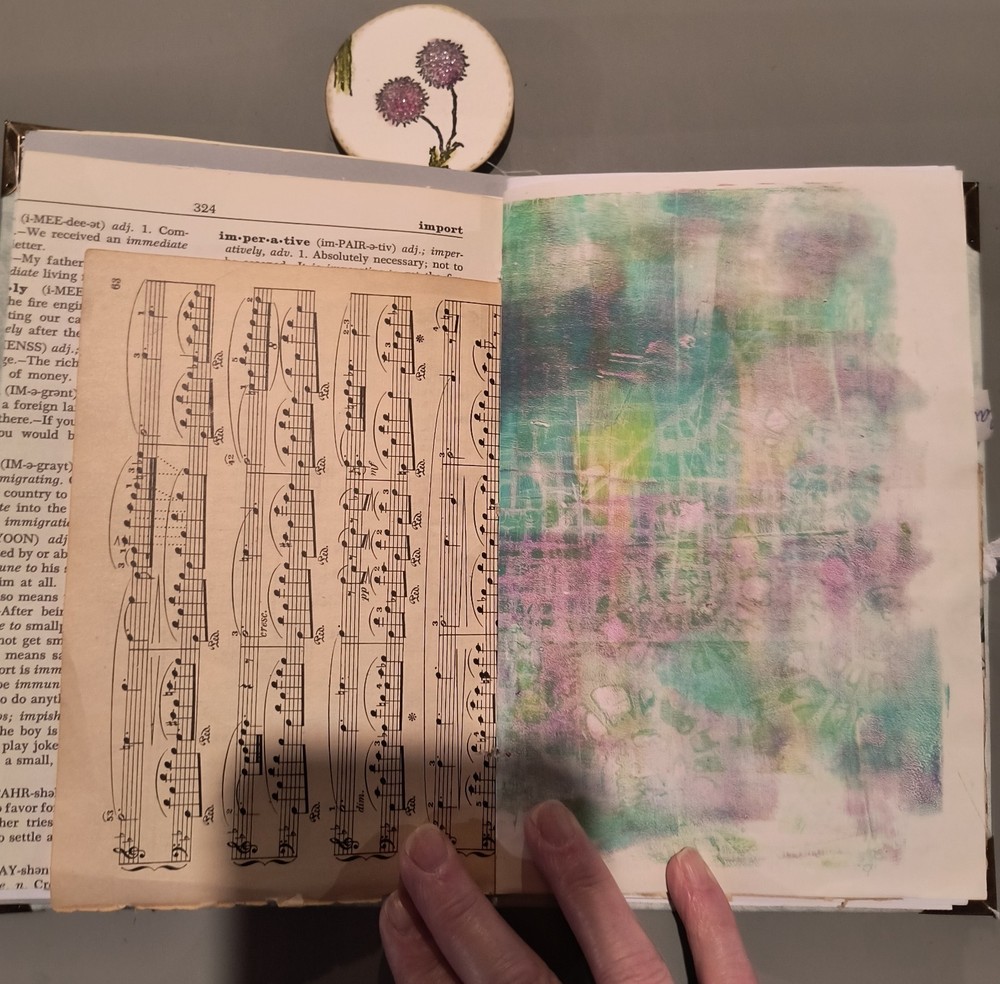 324
import
(i-MEE-dee-ət) adj. 1. Com-
.—We received an immediate
etter.
—My father
diate living
·ly (i-MEE
he fire engi
ting our ca
ely after the
ENSS) adj.;
ge.—The rich
of money.
(IM-ə-grənt)
a foreign la
there.—If you
ou would b
(IM-ə-grayt)
migrating.
country to
te into the
immigrati
YOON) adj
ed by or ab
une to his
im at all.
so means
After bein
e to smallp
not get sm
means sa
ort is imm
be immun
o do anyt
os; impish
he boy is
play joke
a small,
PAHR-shəl
favor fo
her tries
o settle a
AY-shən
e, n. Cr
im·per·a·tive (im-PAIR-ə-tiv) adj.; imper-
atively, adv. 1. Absolutely necessary; not to
63
53
42
cresc.
dim.
pp
8